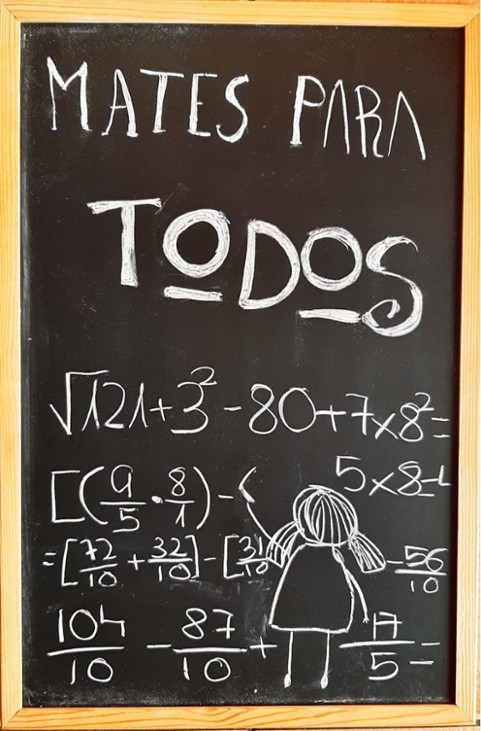 MATES PARA
TODOS
√121+3²-80+7x8²=
[(9/5·8/1)-( 5x8-1
=[72/10+32/10]-[31/10 -56/10
104/10-87/10+ 17/5=